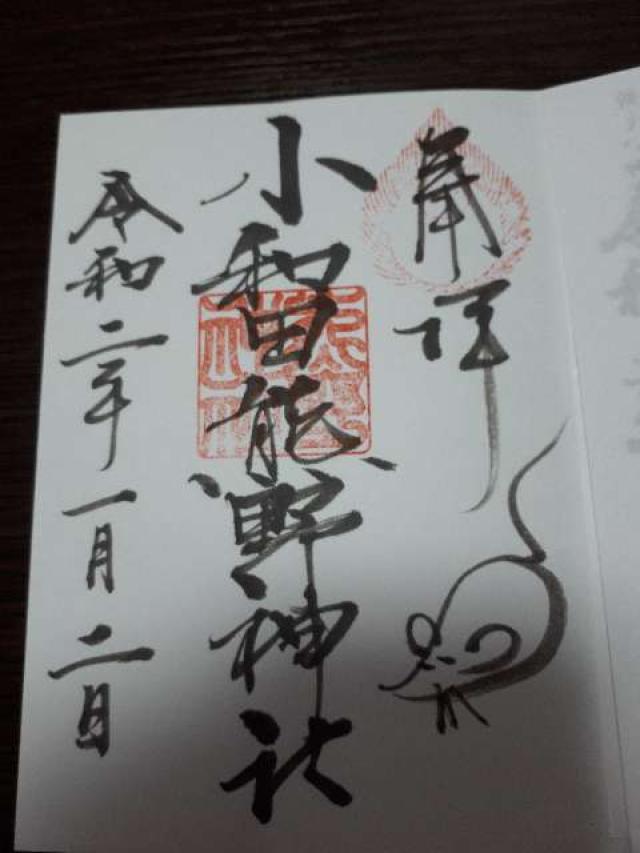 奉拝
小和田熊野神社
令和二年一月二日